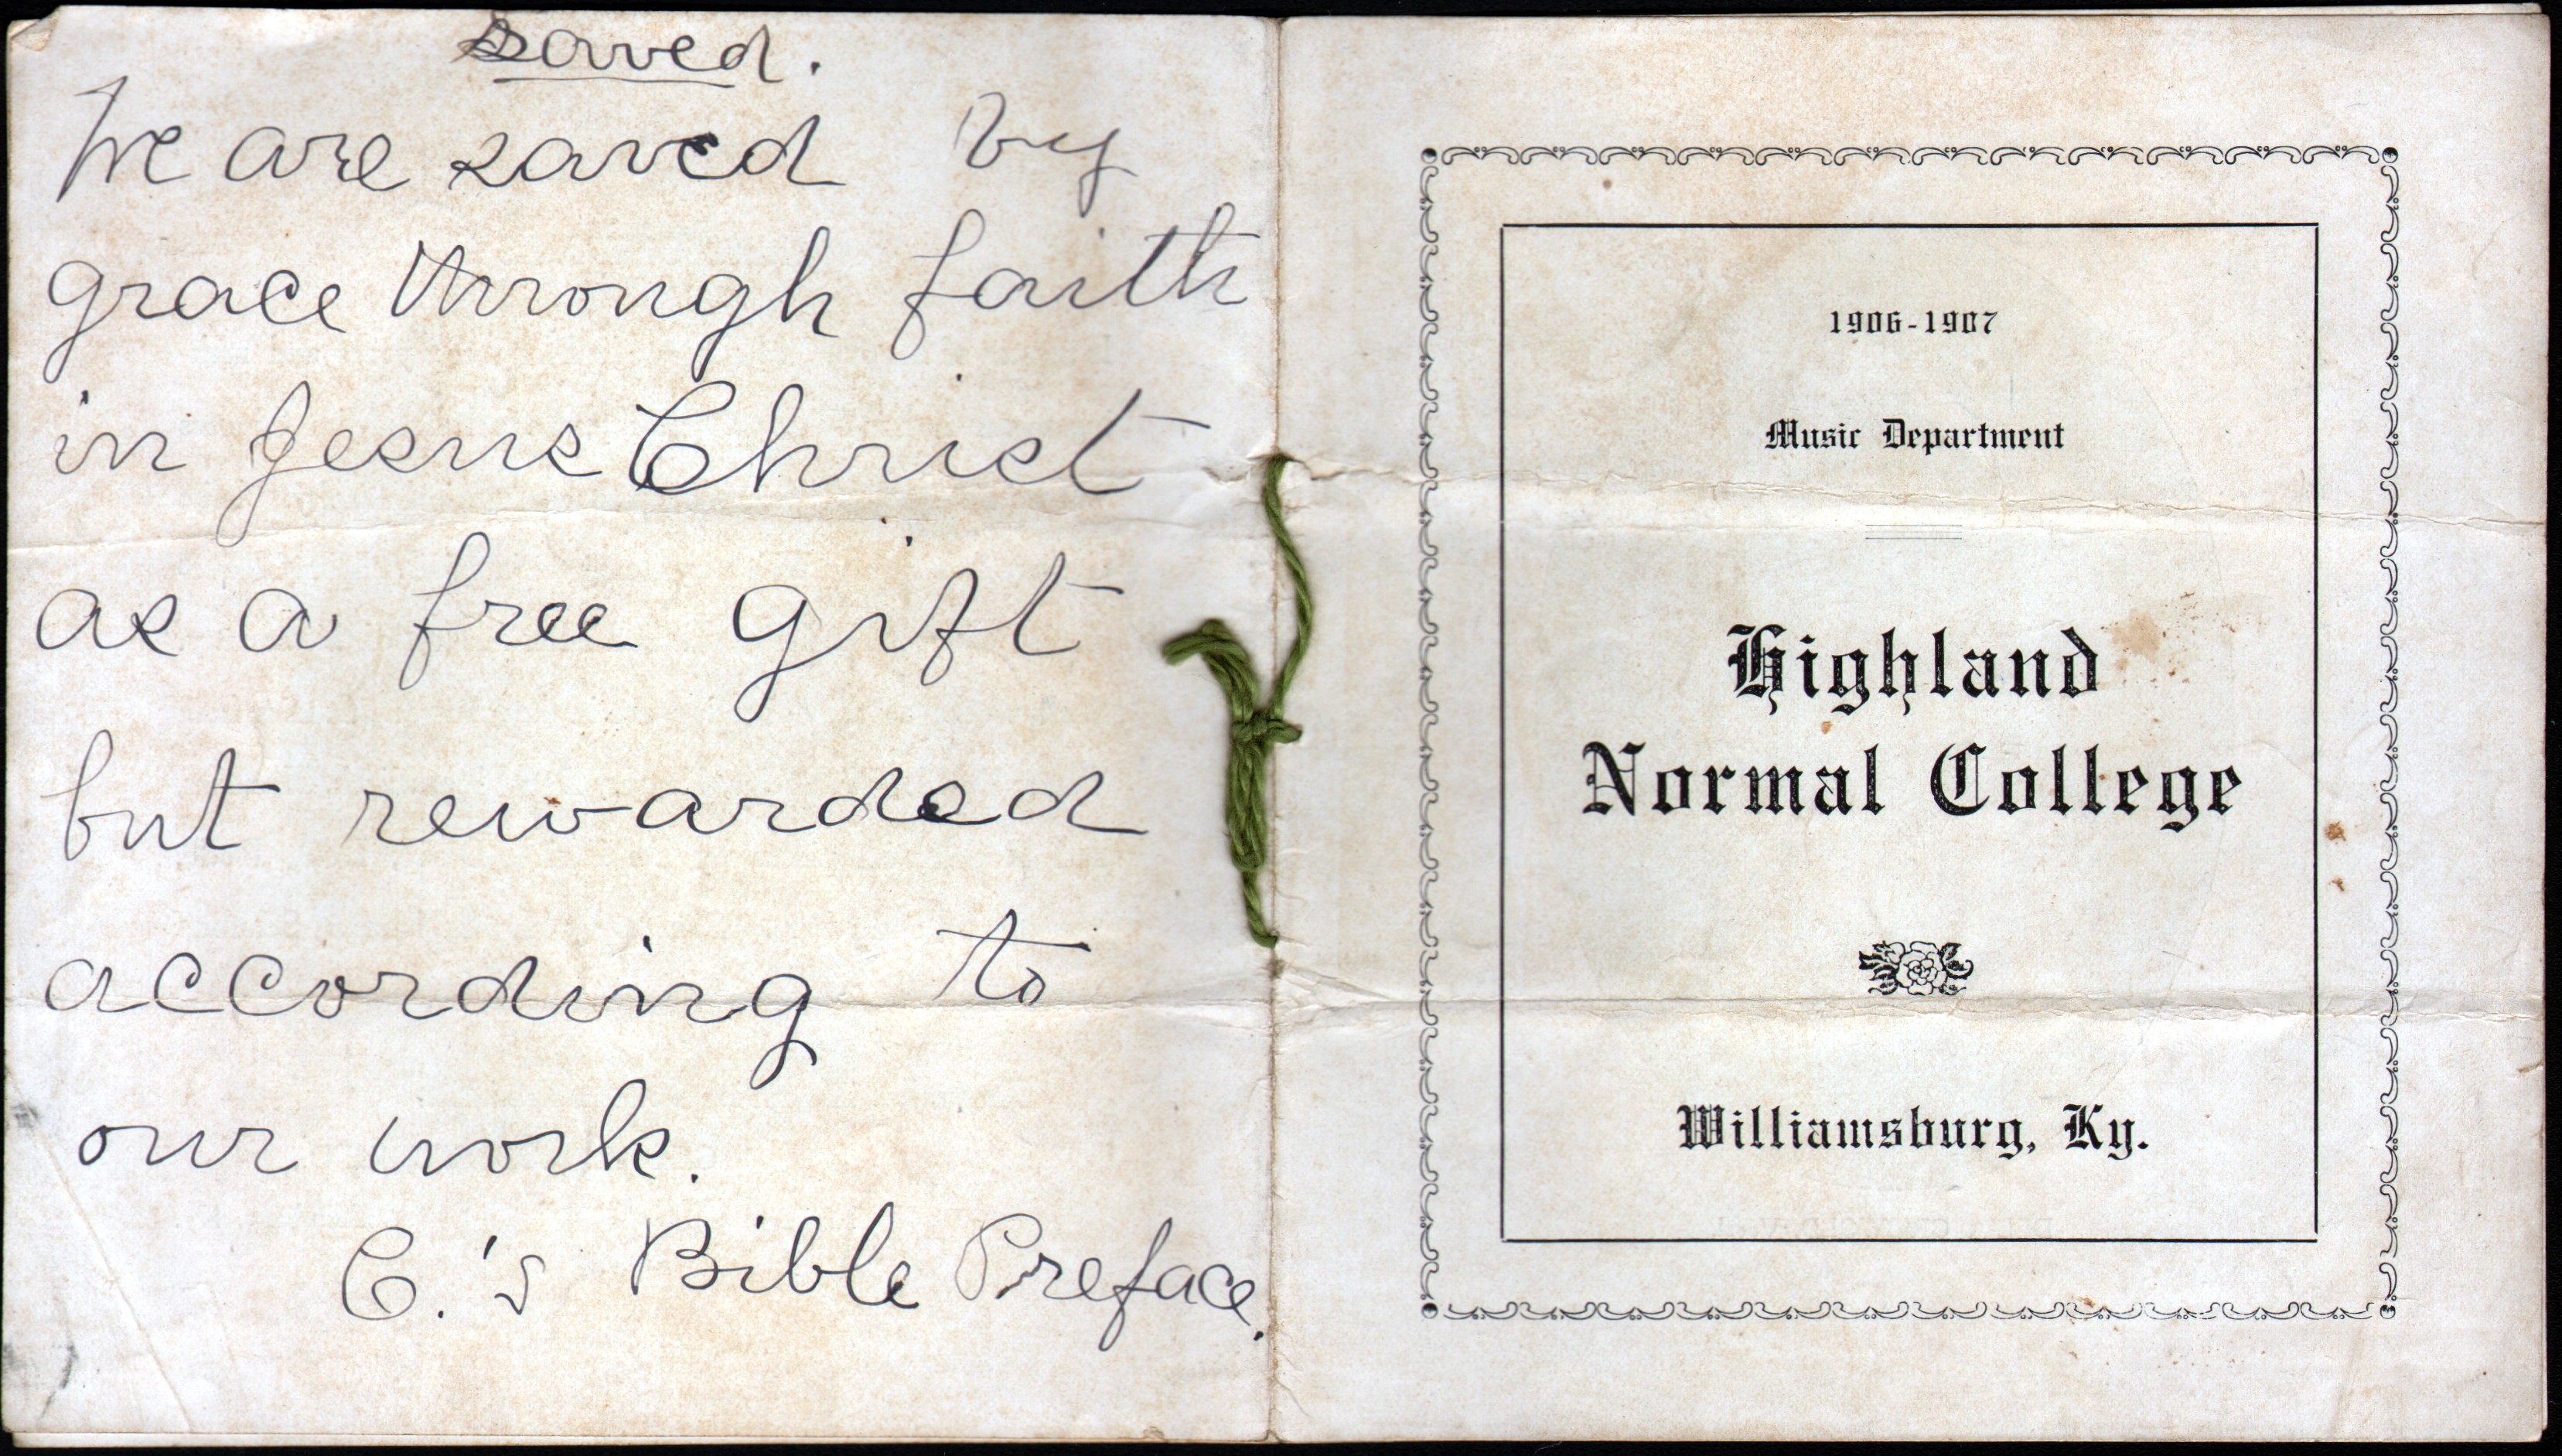 saved.
We are saved by
grace through faith
in Jesus Christ
as a free gift
but rewarded
according to
our work.
C.'s Bible Preface.
1906-1907
Music Department
Highland
Normal College
Williamsburg, Ky.